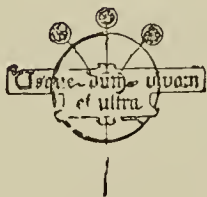 Usque dum vivam
et ultra